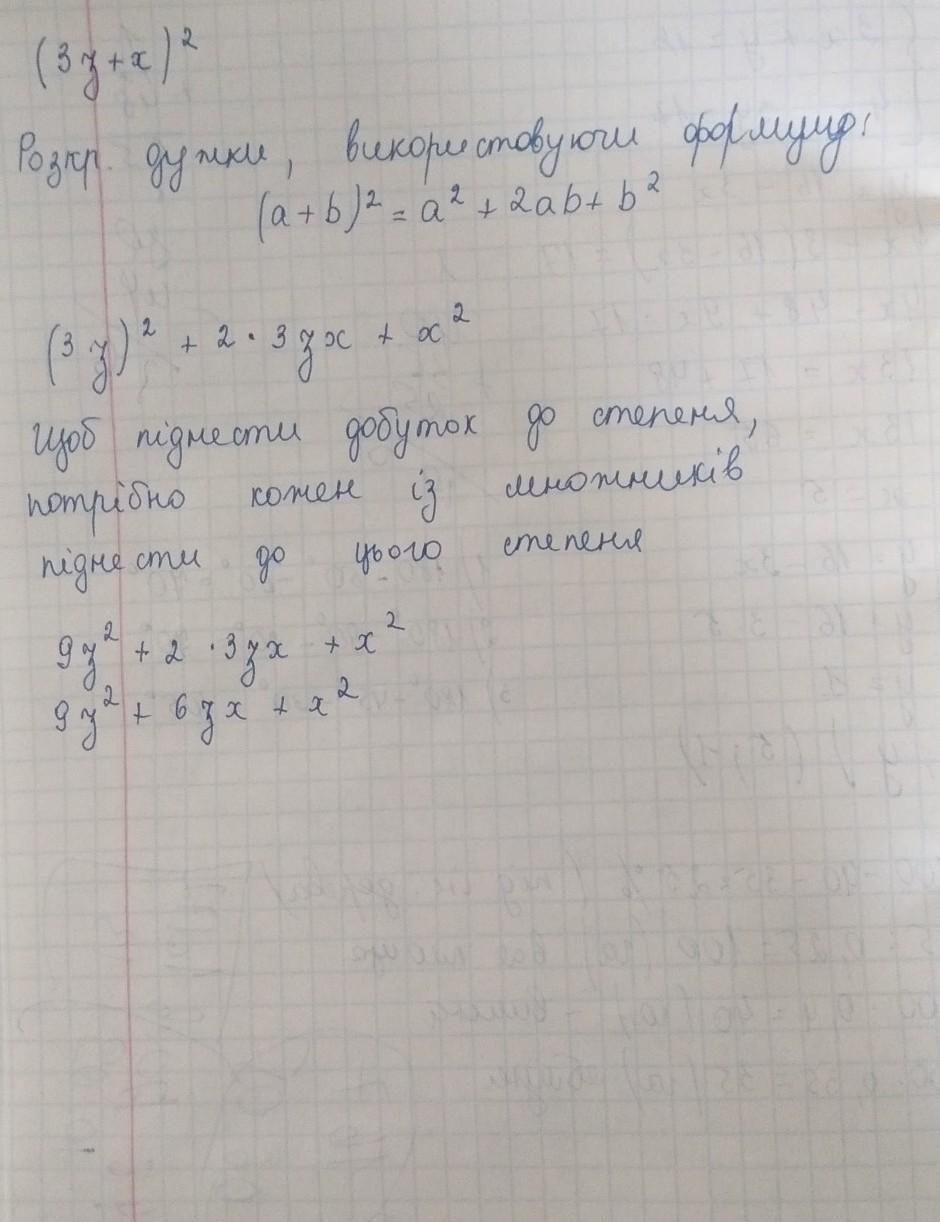 (3z+x)²
Розкр. дужки, використовуючи формулу:
(a+b)² = a² + 2ab + b²
(3z)² + 2·3zx + x²
Щоб піднести добуток до степеня,
потрібно кожен із множників
піднести до цього степеня
9z² + 2·3zx + x²
9z² + 6zx + x²